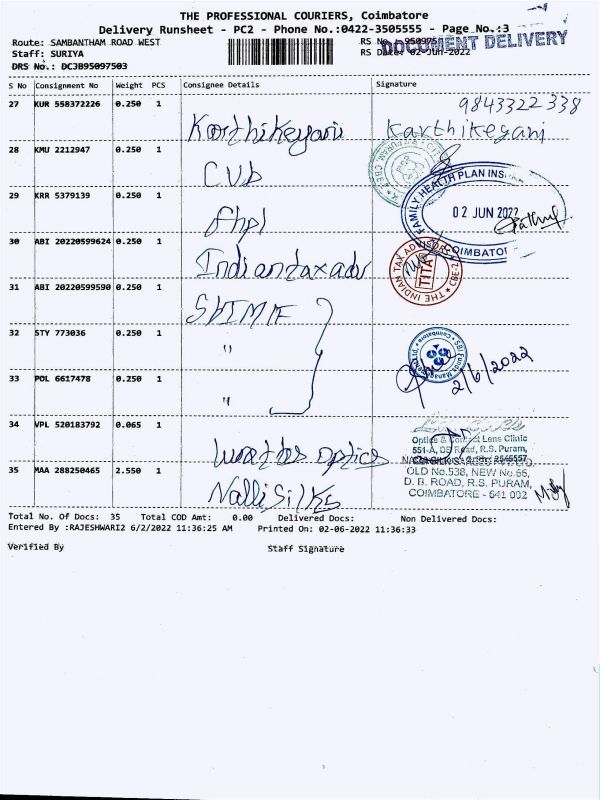 THE PROFESSIONAL COURIERS, Coimbatore
Delivery Runsheet - PC2 - Phone No.:0422-3505555 - Page No.:3
Route: SAMBANTHAM ROAD WEST
RS No.
DOCUMENT DELIVERY
Staff: SURIYA
RS Date: 02-Jun-2022
DRS No.: DCJB95097503
S No Consignment No Weight PCS Consignee Details Signature
9843322338
27 KUR 558372226 0.250 1 Karthikeyani Karthikegani
28 KMU 2212947 0.250 1 CUB
29 KRR 5379139 0.250 1 fhpl
FAMILY HEALTH PLAN
02 JUN 2022
COIMBATORE
30 ABI 20220599624 0.250 1 Indiantaxadv
THE INDIAN TAX ADVISOR
TITA
31 ABI 20220599590 0.250 1
32 STY 773036 0.250 1 "
SBI Funds Management
Coimbatore
2/6/2022
33 POL 6617478 0.250 1 "
34 VPL 520183792 0.065 1 optics
Optics & Contact Lens Clinic
551-A, DB Road, R.S. Puram,
35 MAA 288250465 2.550 1 Nalli Silks
OLD No.538, NEW No.66,
D. B. ROAD, R.S. PURAM,
COIMBATORE - 641 002
Total No. Of Docs: 35 Total COD Amt: 0.00 Delivered Docs: Non Delivered Docs:
Entered By :RAJESHWARI2 6/2/2022 11:36:25 AM Printed On: 02-06-2022 11:36:33
Verified By Staff Signature